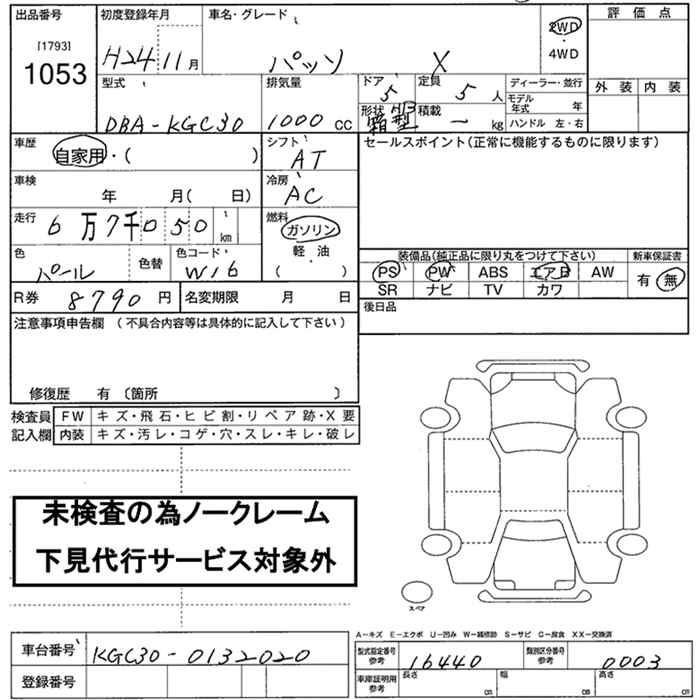 出品番号
[1793]
1053
初度登録年月
H24 11月
車名・グレード
パッソ X
2WD
・
4WD
評価点
外装 内装
型式
DBA-KGC30
排気量
1000 CC
ドア
5
定員
5 人
形状 H/B
箱型
積載
— kg
ディーラー・並行
モデル年式 年
ハンドル 左・右
車歴
自家用・( )
シフト
AT
セールスポイント(正常に機能するものに限ります)
車検
年 月( 日)
冷房
AC
走行
6万7千050 km
燃料
ガソリン
軽・油
( )
色
パール
色替
色コード
W16
装備品(純正品に限り丸をつけて下さい)
PS PW ABS エアB AW
SR ナビ TV カワ
新車保証書
有 無
R券 8790円
名変期限 月 日
後日品
注意事項申告欄 (不具合内容等は具体的に記入して下さい)
修復歴 有〔箇所 〕
検査員記入欄
FW キズ・飛石・ヒビ割・リペア跡・X要
内装 キズ・汚レ・コゲ・穴・スレ・キレ・破レ
未検査の為ノークレーム
下見代行サービス対象外
スペア
A-キズ E-エクボ U-凹み W-補修跡 S-サビ C-腐食 XX-交換済
車台番号 KGC30-0132020
登録番号
型式指定番号
参考
16440
類別区分番号
参考
0003
車庫証明用
参考
長さ cm
幅 cm
高さ cm